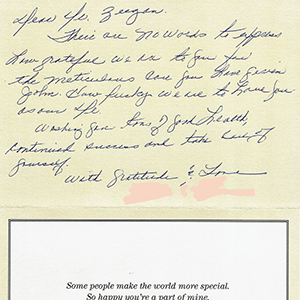 Dear Dr. Zeegan.
There are no words to express
how grateful we are to you for
the meticulous care you have given
John. How lucky we are to have you
as our Dr.
Wishing you tons of good health,
continued success and take care of
yourself.
With gratitude & Love
Some people make the world more special.
So happy you're a part of mine.